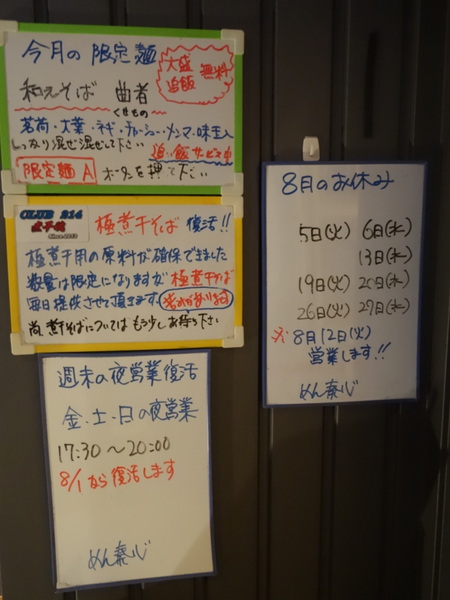 今月の限定麺
大盛
追飯
無料
和えそば 曲者
くせもの
茗荷・大葉・ネギ・チャーシュー・メンマ・味玉入
しっかり混ぜ混ぜして下さい 追い飯サービス中
限定麺A ボタンを押て下さい
CLUB 214
since 2013
極煮干そば 復活!!
極煮干用の原料が確保できました
数量は限定になりますが極煮干そば
毎日提供させて頂きます。
尚、煮干そばについてはもう少しお待ち下さい
週末の夜営業復活
金・土・日の夜営業
17:30〜20:00
8/1から復活します
めん奏心
8月のお休み
5日(火) 6日(水)
13日(水)
19日(火) 20日(水)
26日(火) 27日(水)
※8月12日(火)
営業します!!
めん奏心